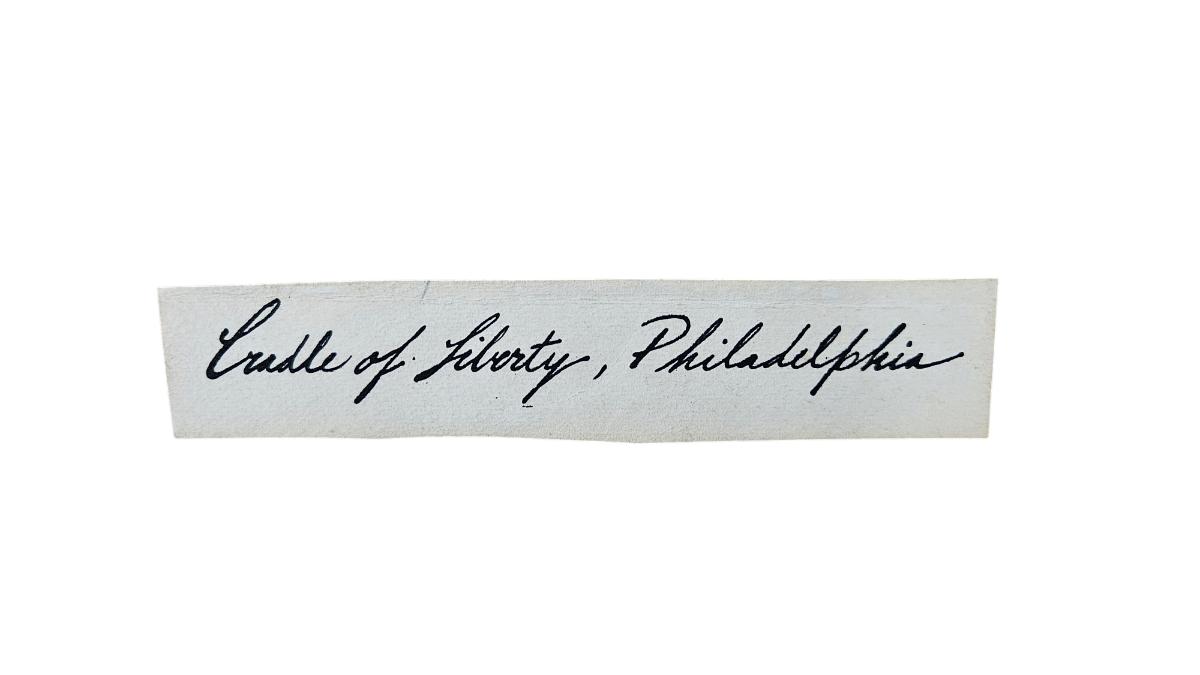 Cradle of Liberty, Philadelphia